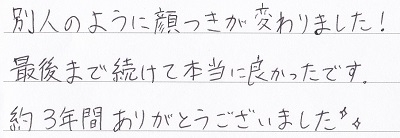 別人のように顔つきが変わりました!
最後まで続けて本当に良かったです.
約3年間ありがとうございました✧✧